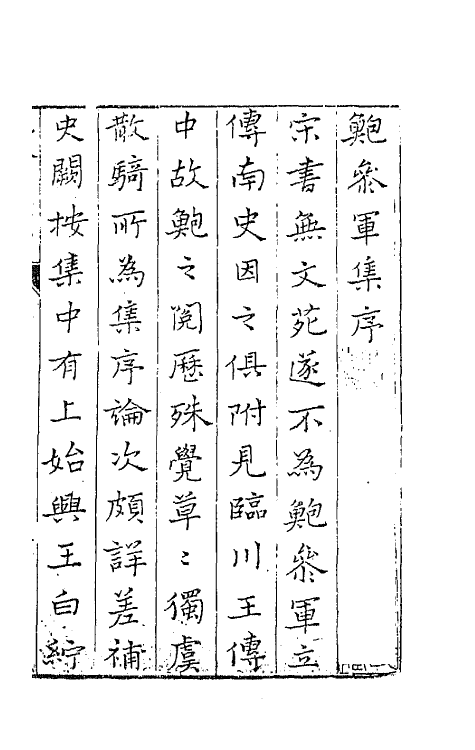 鮑參軍集序
宋書無文苑遂不為鮑參軍立
傳南史因之俱附見臨川王傳
中故鮑之閱歷殊覺草〻獨虞
散騎所為集序論次頗詳差補
史闕按集中有上始興王白紵